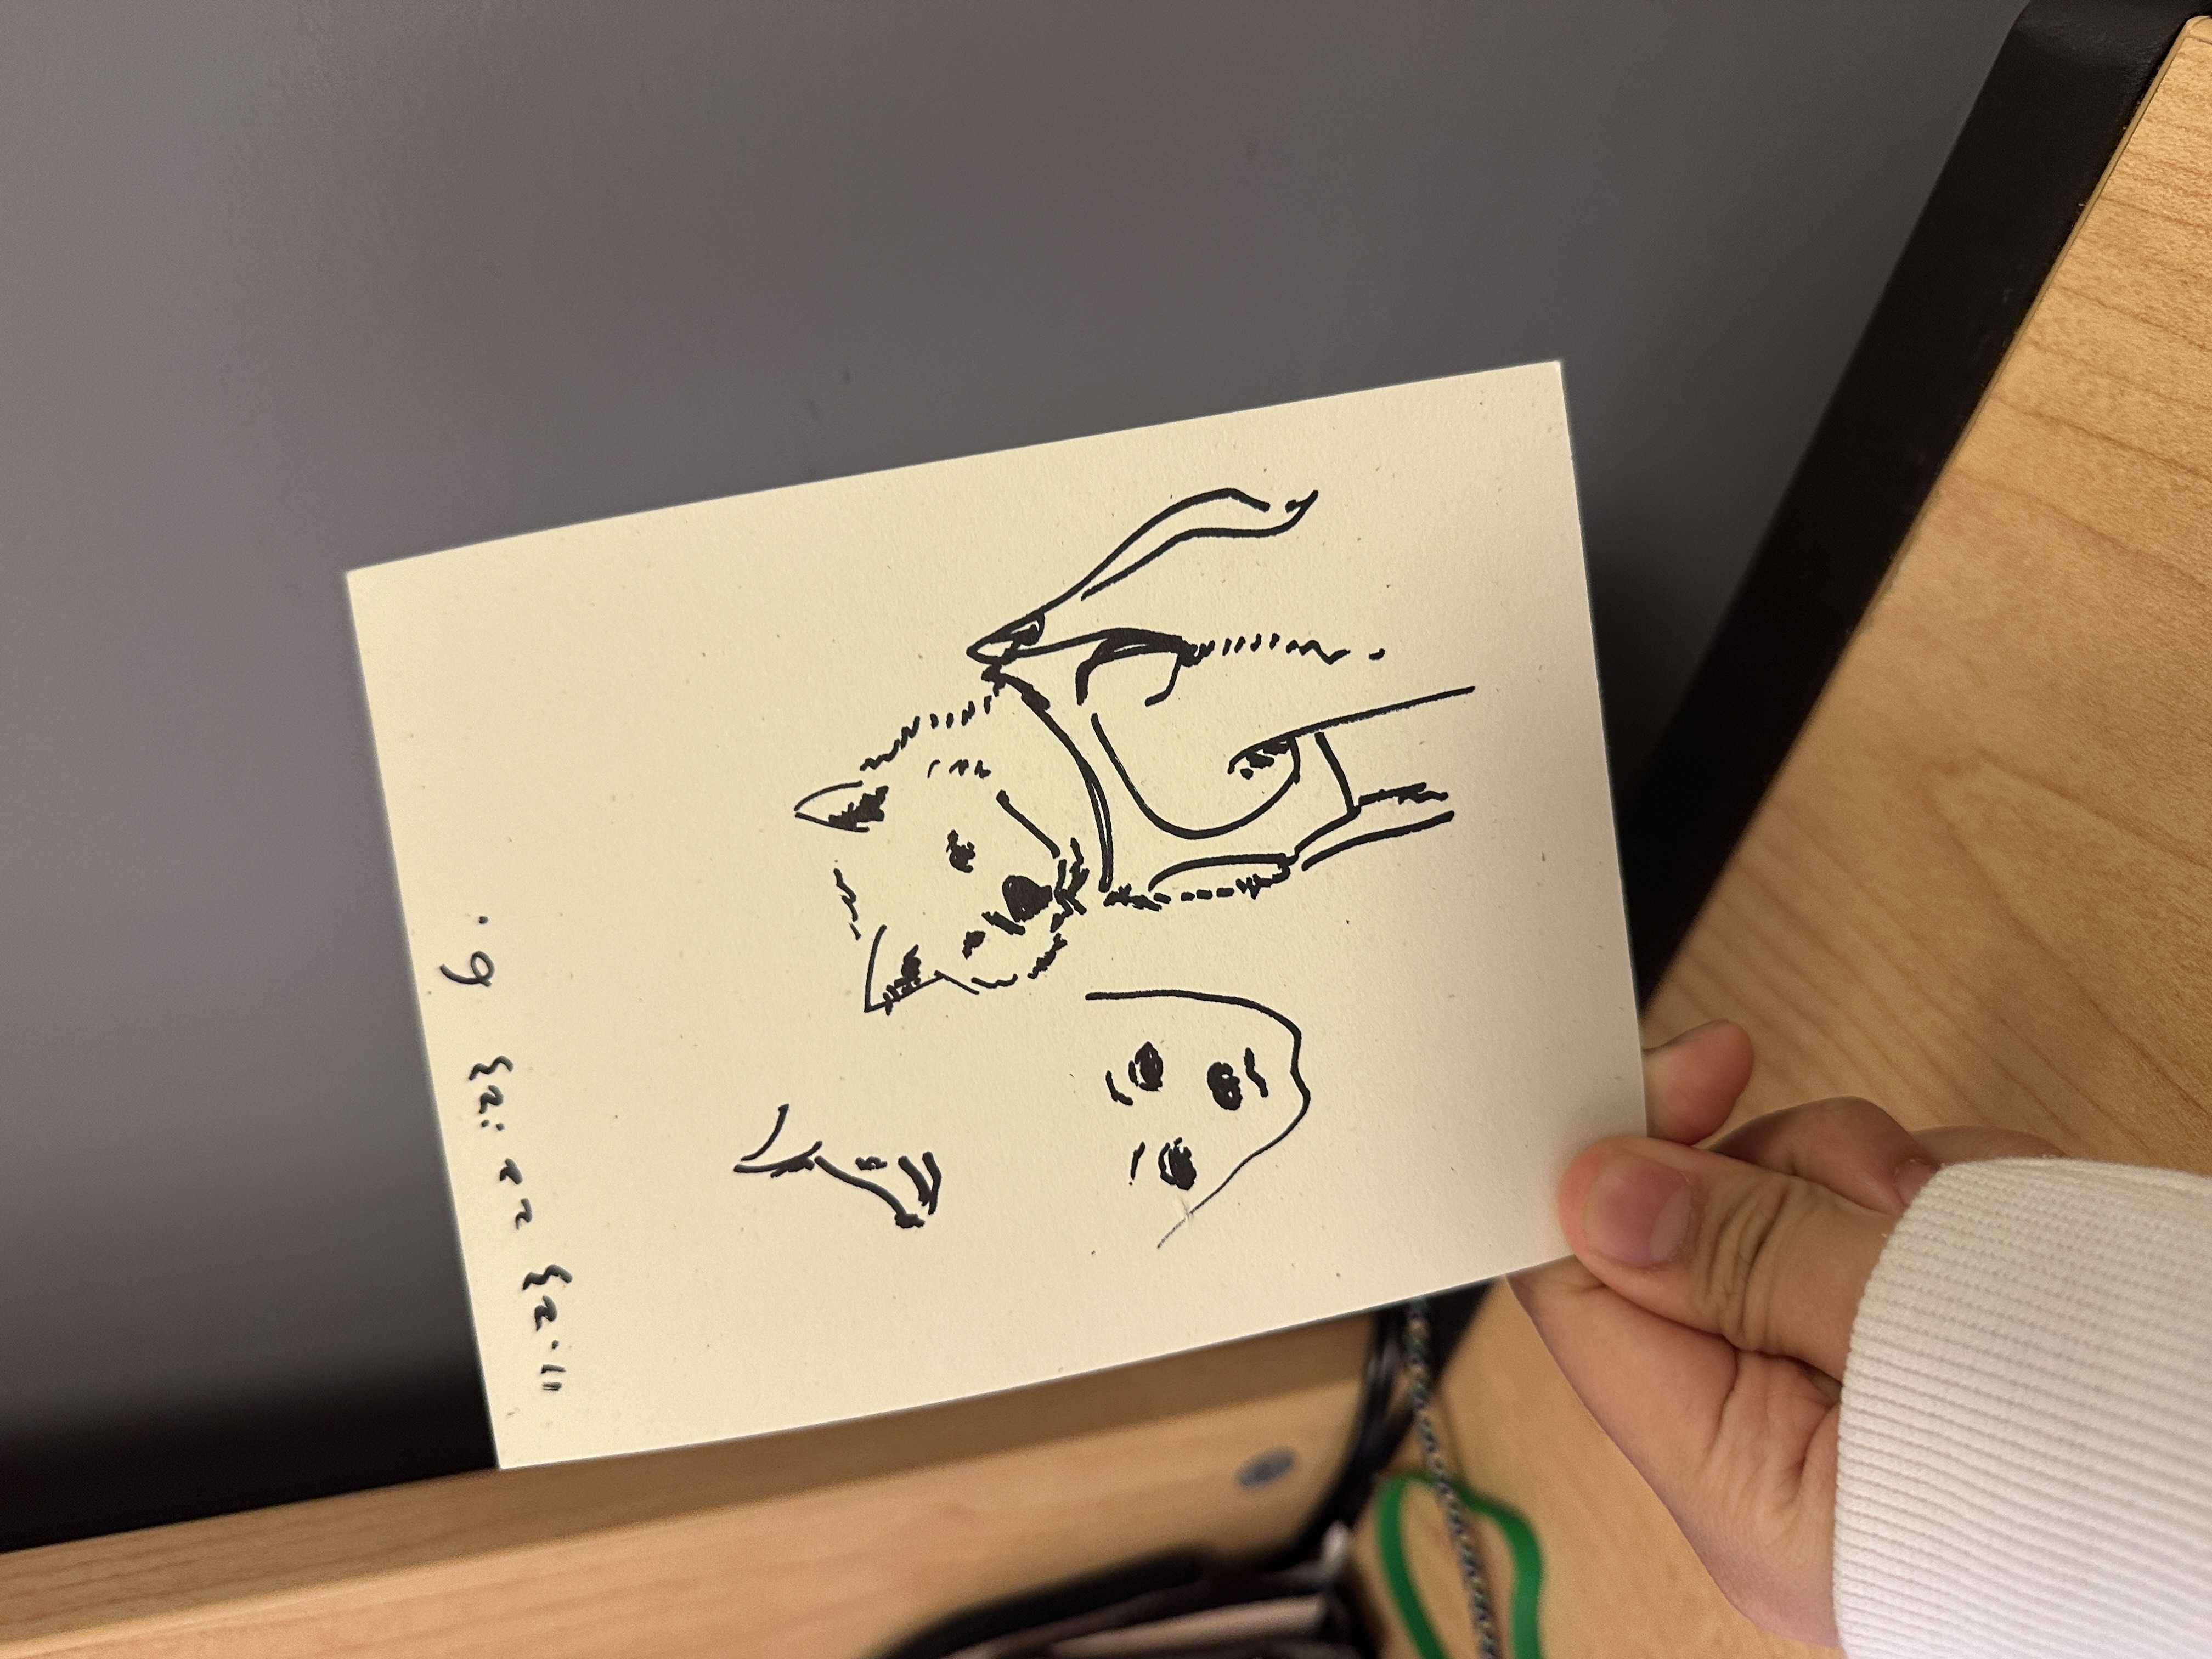 11.23 22:23 6.